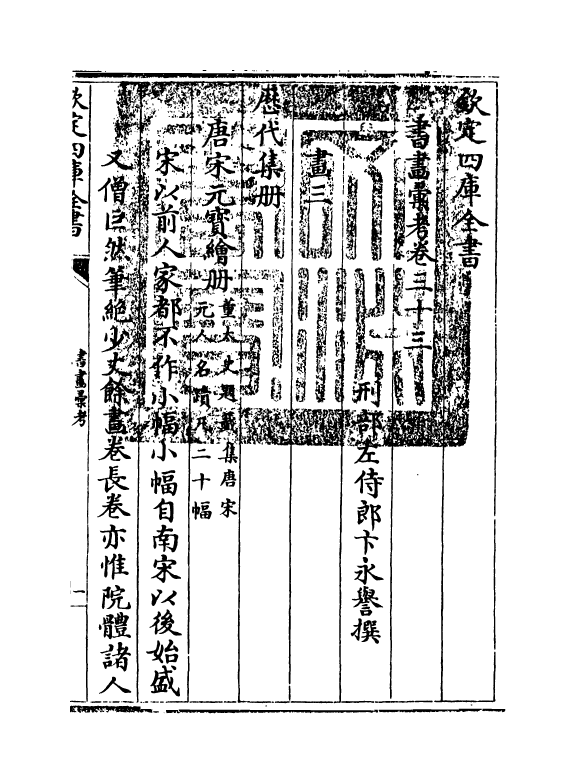 欽定四庫全書
書畫彙考卷三十三
刑部左侍郎卞永譽撰
畫三
歴代集册
唐宋元寶繪册
董太史題籤集唐宋
元人名蹟凡二十幅
宋以前人家都不作小幅小幅自南宋以後始盛
又僧巨然筆絶少丈餘畫卷長卷亦惟院體諸人
欽定四庫全書
書畫彙考
一